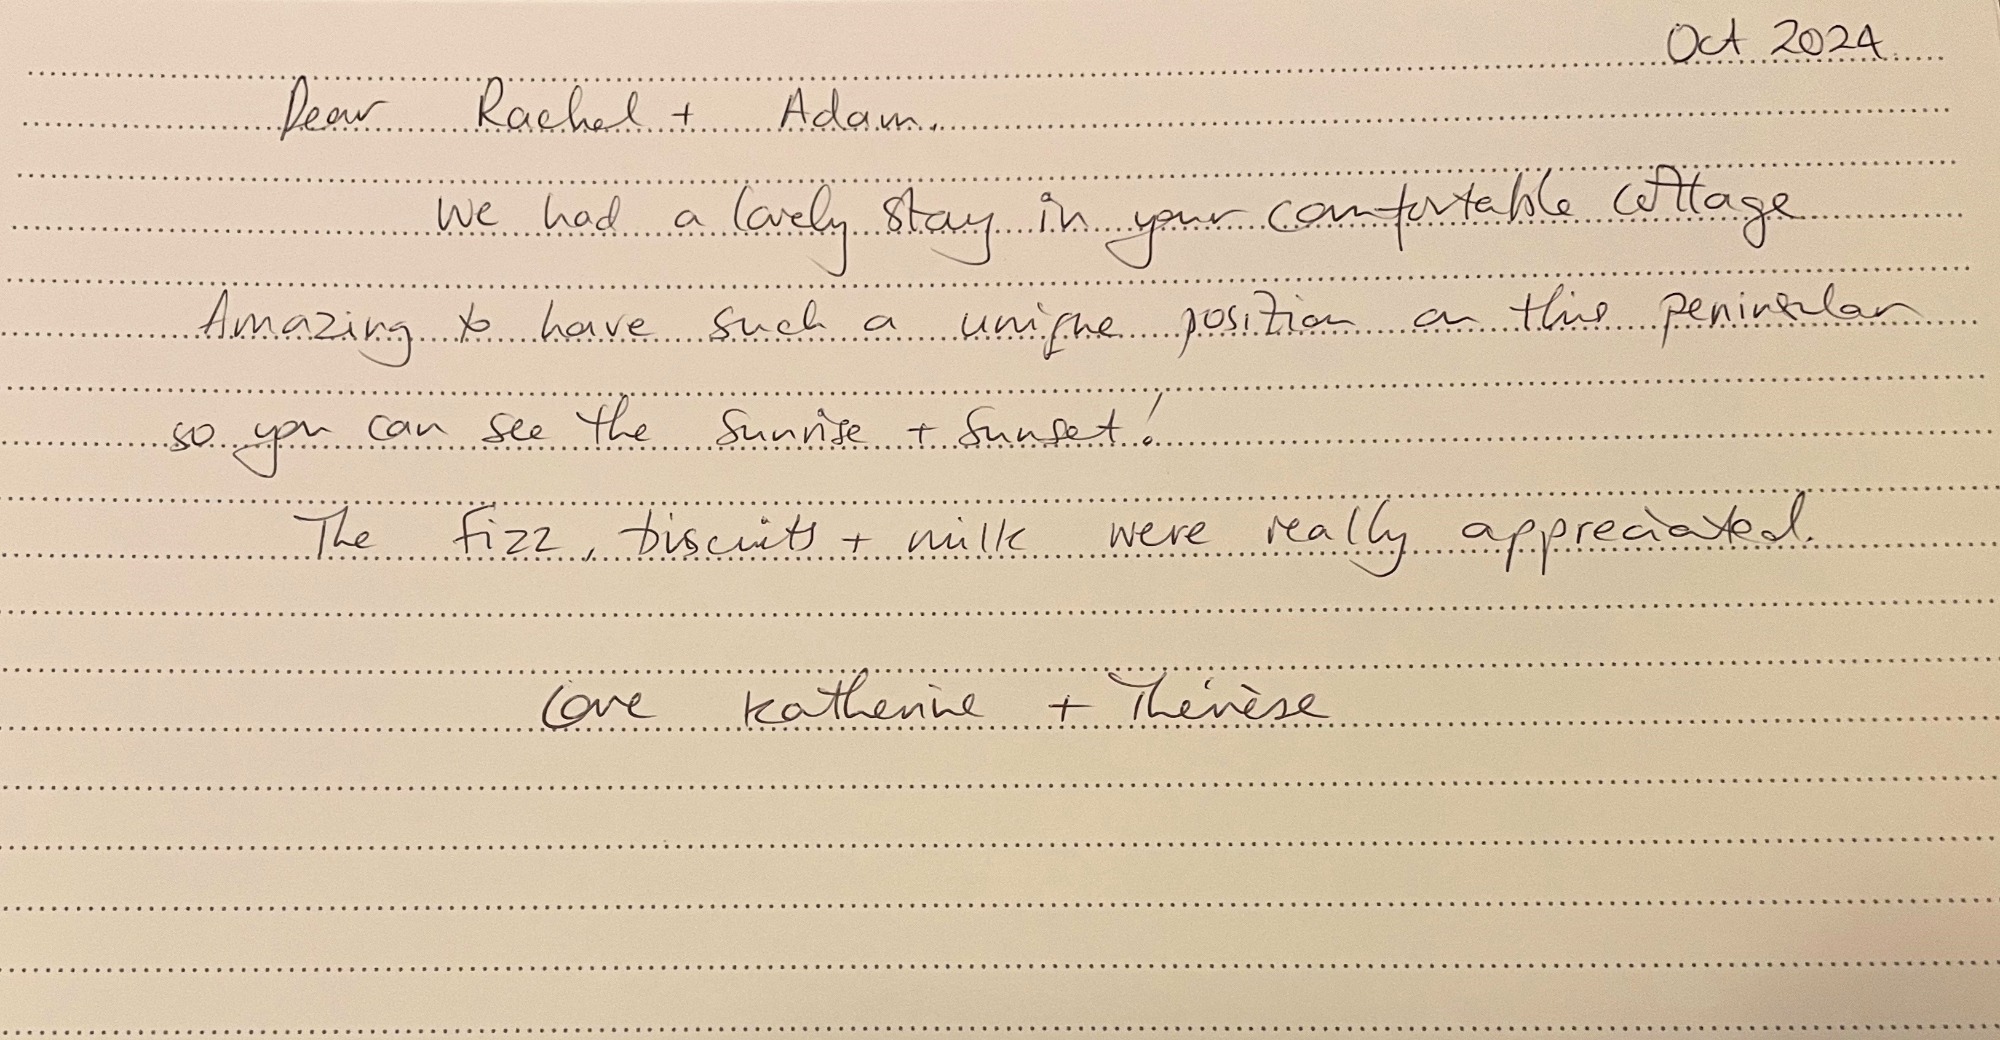 Oct 2024.
Dear Rachel + Adam,
We had a lovely stay in your comfortable cottage
Amazing to have such a unique position on this peninsular
so you can see the sunrise + sunset!
The fizz, biscuits + milk were really appreciated.
Love Katherine + Thérèse